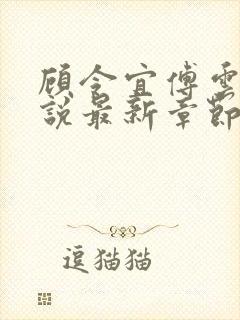 顾令宜傅雲
說最新章節
逗猫猫